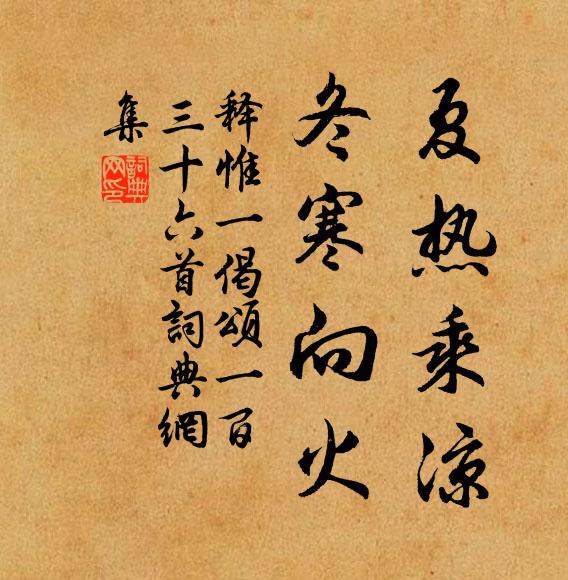 夏热乘凉
冬寒向火
释惟一偈颂一百
三十六首詞典網
集
詞典网印